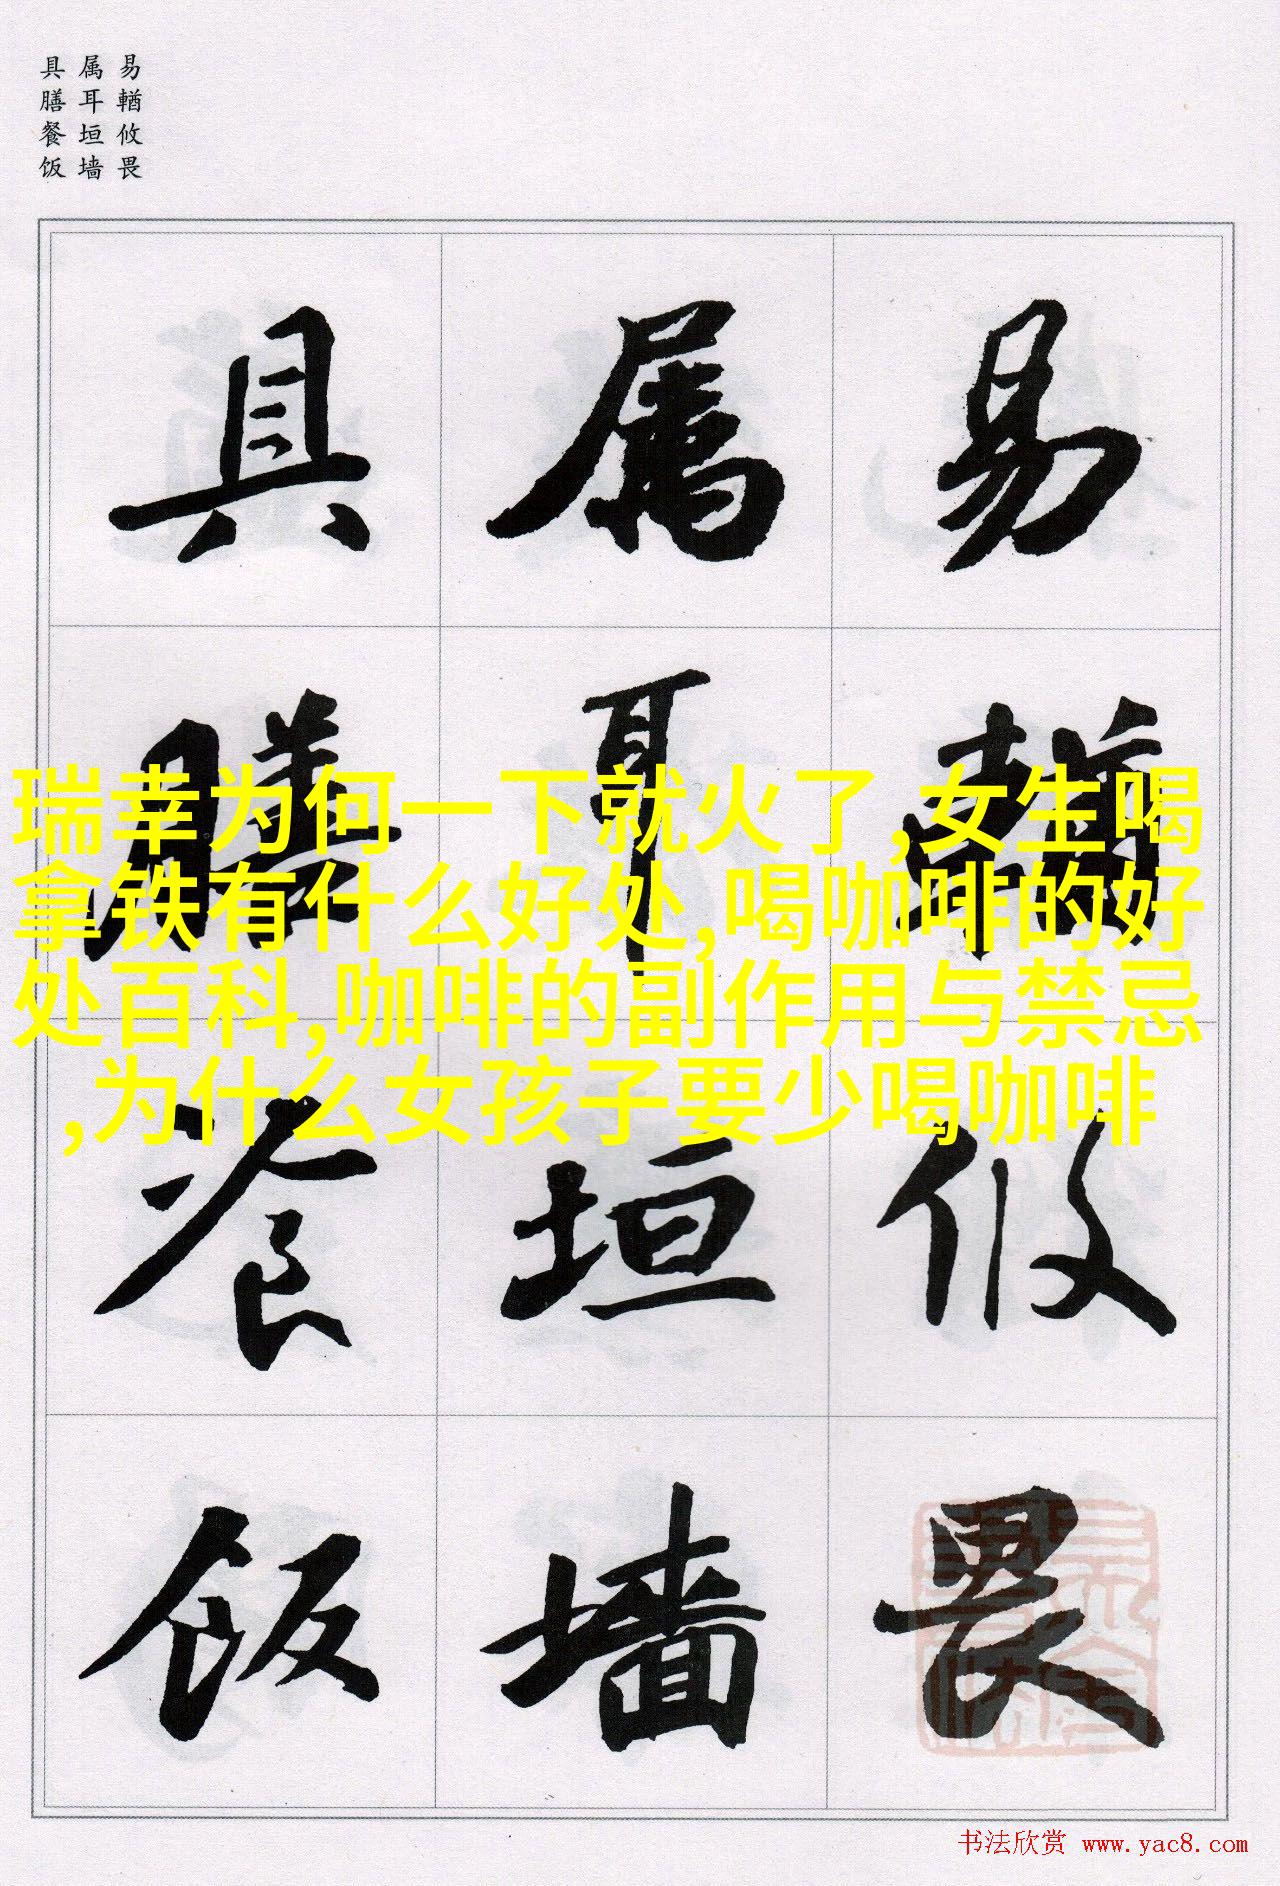 易輶攸畏
属耳垣墙
具膳餐饭
易輶攸畏
属耳垣墙
具膳餐饭
瑞幸为何一下就火了,女生喝
拿铁有什么好处,喝咖啡的好
处百科,咖啡的副作用与禁忌
,为什么女孩子要少喝咖啡
书法欣赏 www.yac8.com